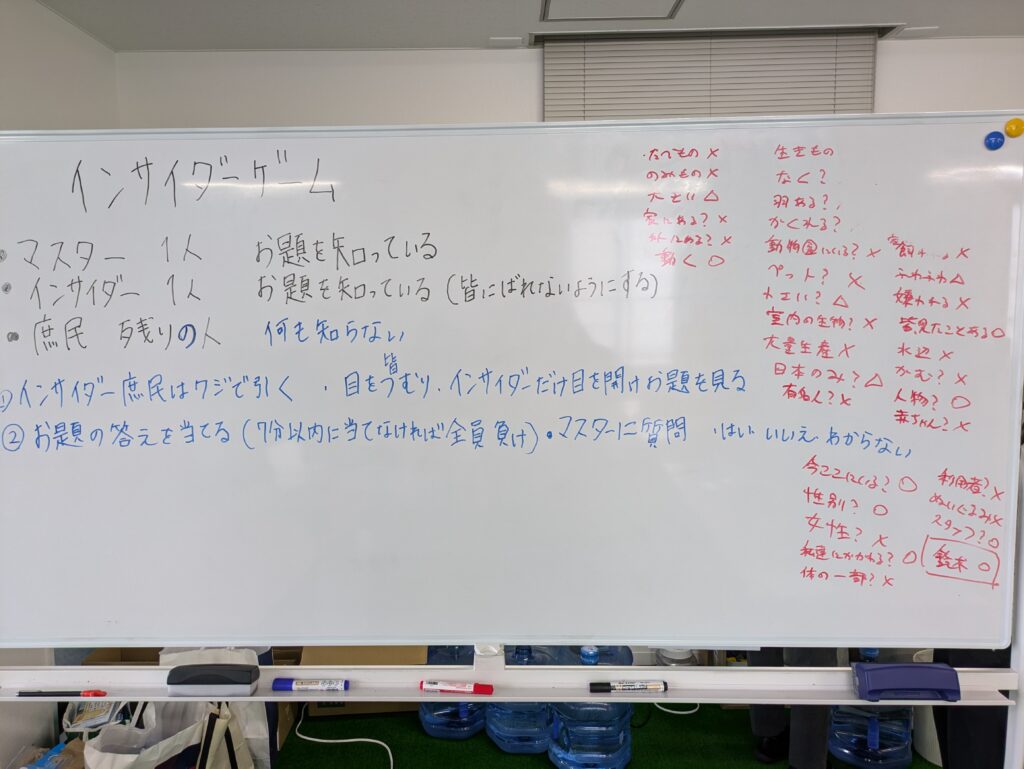 インサイダーゲーム
・マスター 1人 お題を知っている
・インサイダー 1人 お題を知っている (皆にばれないようにする)
・庶民 残りの人 何も知らない
①インサイダー庶民はクジで引く ・皆目をつむり・インサイダーだけ目を開けお題を見る
②お題の答えを当てる (7分以内に当てなければ全員負け)・マスターに質問 ・はい いいえ わからない
・たべもの ×
のみもの ×
大きい △
家にある? ×
外にある? ×
動く ○
生きもの
なく?
羽ある?
かくれる?
動物園にいる? ×
ペット? ×
室内の生物? ×
大量生産 ×
日本のみ? △
有名人? ×
ふわふわ △
嫌われる ×
皆見たことある ○
水辺 ×
かむ? ×
人物? ○
赤ちゃん? ×
今ここにいる? ○
性別? ○
女性? ×
私達にかかわる? ○
体の一部? ×
利用者? ×
ぬいぐるみ ×
スタッフ? ○
鈴木 ○